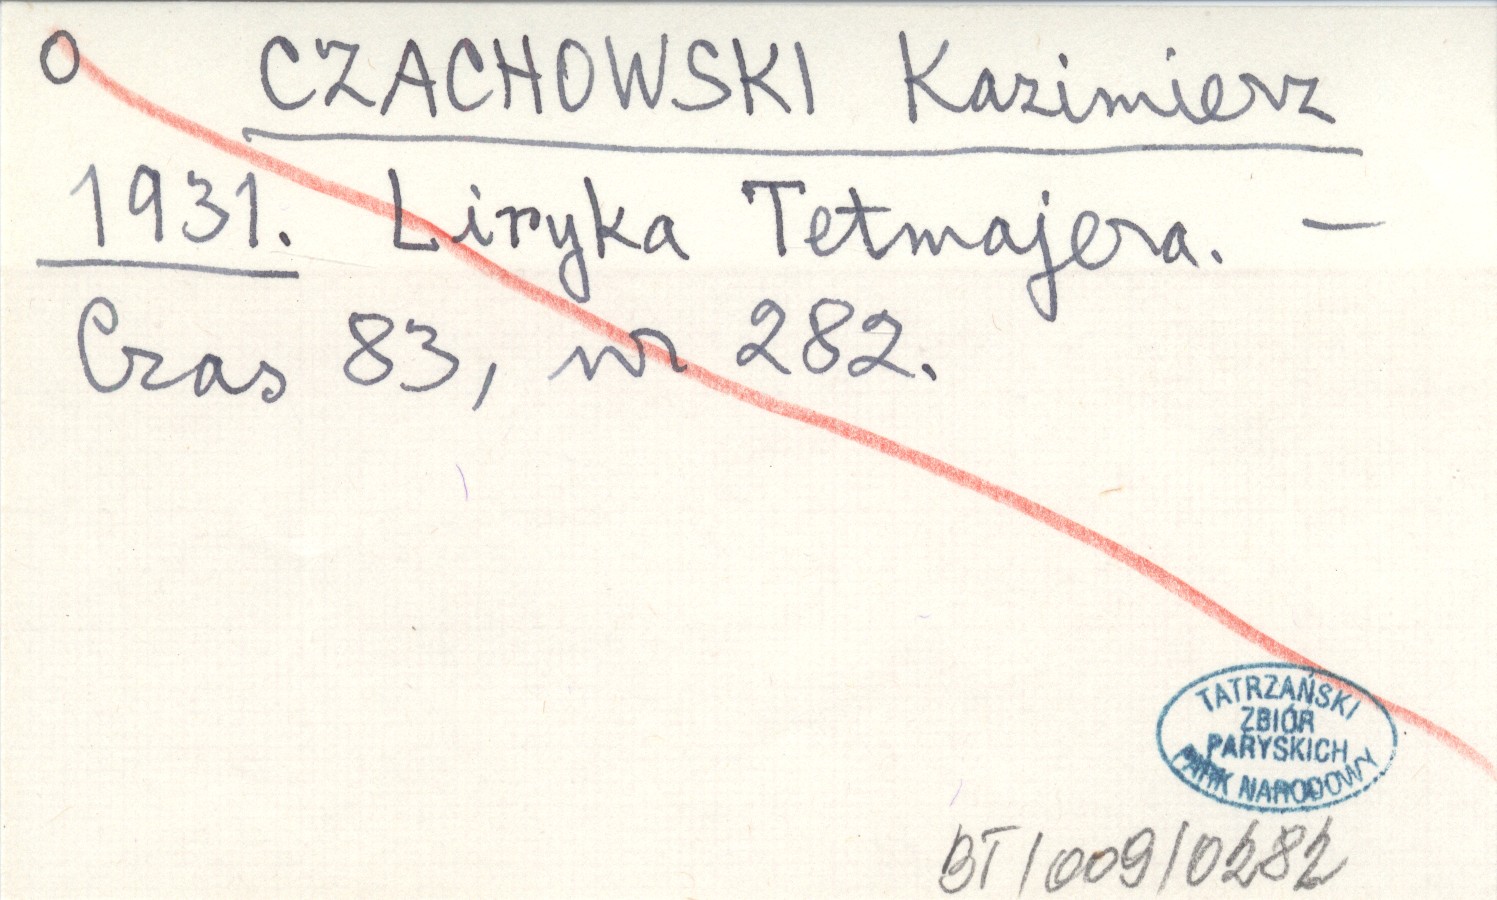 O CZACHOWSKI Kazimierz
1931. Liryka Tetmajera. —
Czas 83, nr 282.
TATRZAŃSKI
ZBIÓR
PARYSKICH
PARK NARODOWY
BT/009/0282